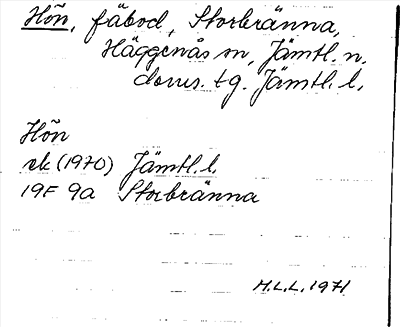 Hõn, fäbod, Storbränna,
Häggenås sn, Jämtl. n.
doms. tg. Jämtl. l.
Hõn
ek (1970) Jämtl. l.
19F 9a Storbränna
M.L.L. 1971